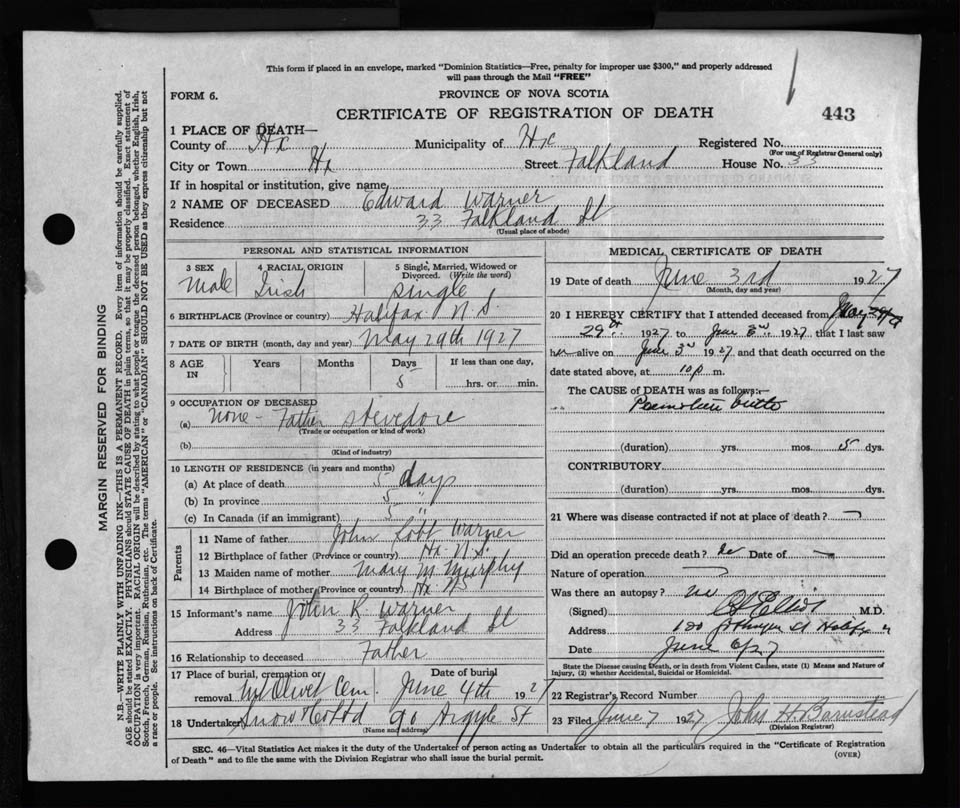 This form if placed in an envelope, marked "Dominion Statistics—Free, penalty for improper use $300," and properly addressed
will pass through the Mail "FREE"
FORM 6.
PROVINCE OF NOVA SCOTIA
CERTIFICATE OF REGISTRATION OF DEATH
443
1 PLACE OF DEATH—
County of Hx Municipality of Hx Registered No.
(For use of Registrar General only)
City or Town Hx Street Falkland House No. 33
If in hospital or institution, give name
2 NAME OF DECEASED Edward Warner
Residence 33 Falkland St
(Usual place of abode)
PERSONAL AND STATISTICAL INFORMATION
3 SEX 4 RACIAL ORIGIN 5 Single, Married, Widowed or Divorced. (Write the word)
Male Irish Single
6 BIRTHPLACE (Province or country) Halifax N.S.
7 DATE OF BIRTH (month, day and year) May 29th 1927
8 AGE IN Years Months Days 5 If less than one day, hrs. or min.
9 OCCUPATION OF DECEASED
(a) None - Father stevedore
(Trade or occupation or kind of work)
(b)
(Kind of industry)
10 LENGTH OF RESIDENCE (in years and months)
(a) At place of death 5 days
(b) In province 5 "
(c) In Canada (if an immigrant) 5 "
Parents
11 Name of father John Robt Warner
12 Birthplace of father (Province or country) Hx. N.S.
13 Maiden name of mother Mary M Murphy
14 Birthplace of mother (Province or country) Hx NS
15 Informant's name John R. Warner
Address 33 Falkland St
16 Relationship to deceased Father
17 Place of burial, cremation or removal Mt Olivet Cem. Date of burial June 4th 1927
18 Undertaker Snow & Co Ltd 90 Argyle St
(Name and address)
MEDICAL CERTIFICATE OF DEATH
19 Date of death June 3rd 1927
(Month, day and year)
20 I HEREBY CERTIFY that I attended deceased from May
29th 1927 to June 3rd 1927 that I last saw
him alive on June 3rd 1927 and that death occurred on the
date stated above, at 10 p m.
The CAUSE of DEATH was as follows:—
(duration) yrs. mos. 5 dys.
CONTRIBUTORY
(duration) yrs. mos. dys.
21 Where was disease contracted if not at place of death?
Did an operation precede death? Date of
Nature of operation
Was there an autopsy? no
(Signed) M.D.
Address Halifax
Date June 6/27
State the Disease causing Death, or in death from Violent Causes, state (1) Means and Nature of
Injury, (2) whether Accidental, Suicidal or Homicidal.
22 Registrar's Record Number
23 Filed June 7 1927 John H. Barnstead
(Division Registrar)
SEC. 46—Vital Statistics Act makes it the duty of the Undertaker or person acting as Undertaker to obtain all the particulars required in the "Certificate of Registration
of Death" and to file the same with the Division Registrar who shall issue the burial permit.
(OVER)
MARGIN RESERVED FOR BINDING
N.B.—WRITE PLAINLY WITH UNFADING INK—THIS IS A PERMANENT RECORD. Every item of information should be carefully supplied.
AGE should be stated EXACTLY. PHYSICIANS should STATE CAUSE OF DEATH in plain terms, so that it may be properly classified. Exact statement of
OCCUPATION is very important. RACIAL ORIGIN will be described by stating to what people or tongue the deceased person belonged, whether English, Irish,
Scotch, French, German, Russian, Ruthenian, etc. The terms "AMERICAN" or "CANADIAN" SHOULD NOT BE USED as they express citizenship but not
a race or people. See instructions on back of Certificate.